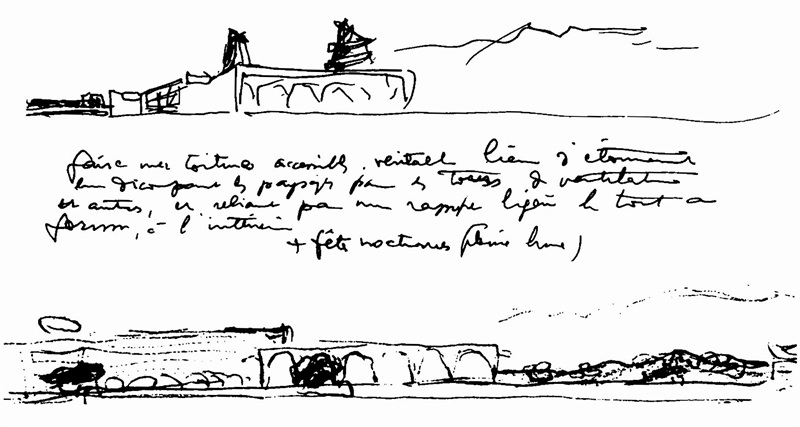 faire une toiture accessible, véritable lieu d'étonnement
en découpant les paysages par les tours de ventilation
et autres, et reliant par une rampe légère le tout au
forum, à l'intérieur
+ fête nocturnes (pleine lune)